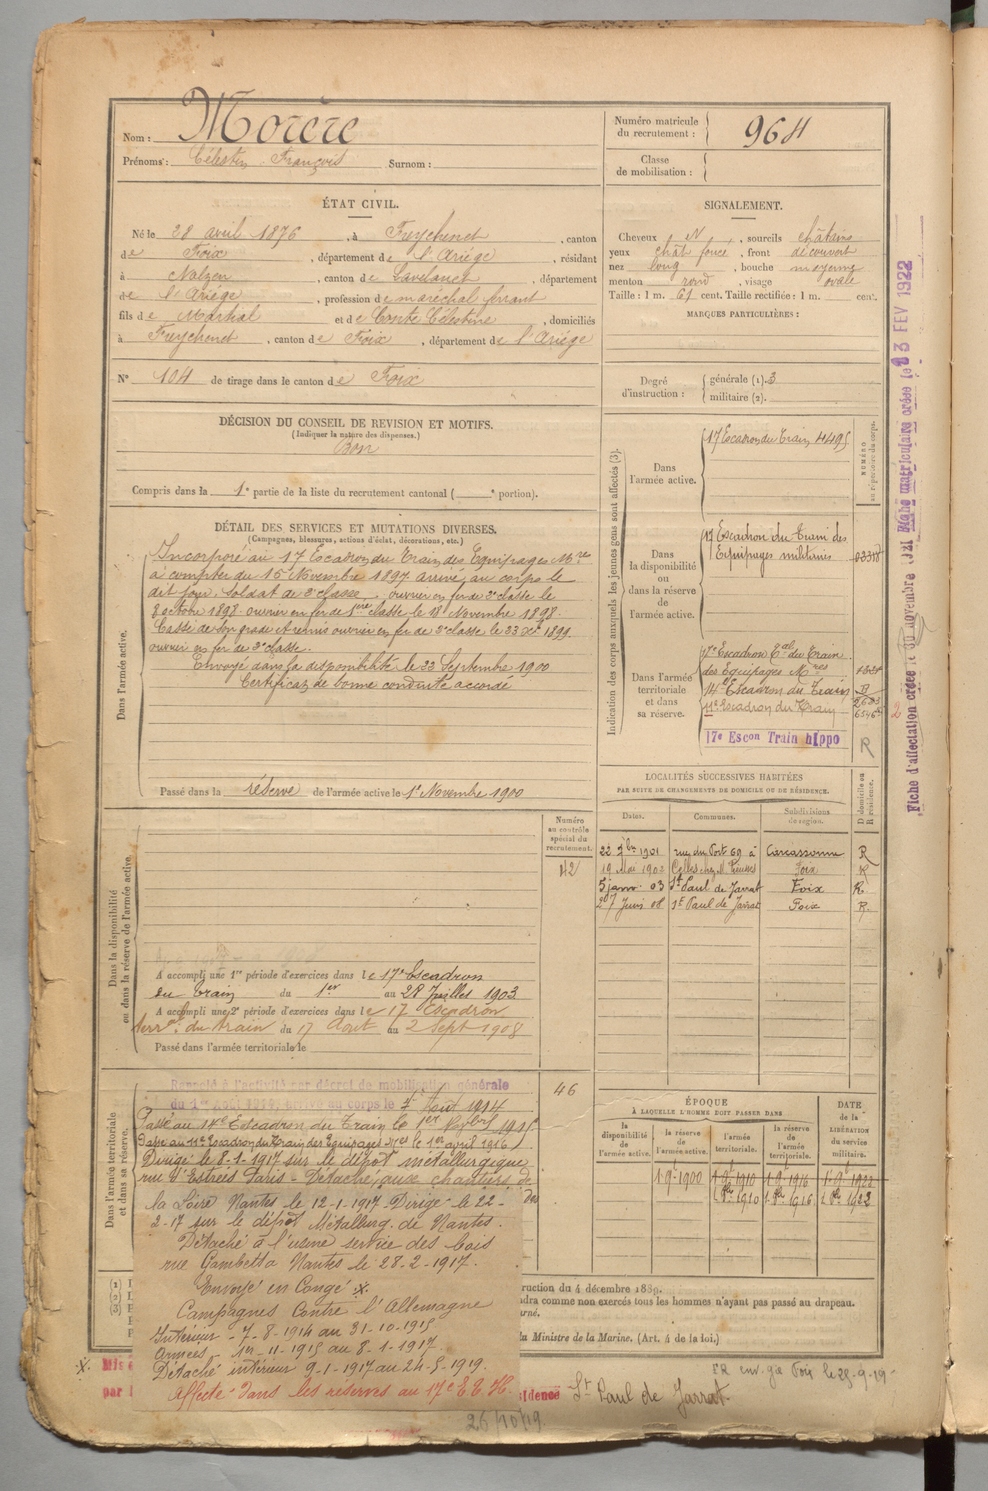 Nom : Morère
Prénoms : Célestin François Surnom :
Numéro matricule du recrutement : 964
Classe de mobilisation :
ÉTAT CIVIL.
Né le 28 avril 1876, à Freychenet, canton
de Foix, département de l'Ariège, résidant
à Nalzen, canton de Lavelanet, département
de l'Ariège, profession de maréchal ferrant
fils de Martial et de Conte Célestine, domiciliés
à Freychenet, canton de Foix, département de l'Ariège
N° 104 de tirage dans le canton de Foix
SIGNALEMENT.
Cheveux N, sourcils châtains
yeux chât foncé, front découvert
nez long, bouche moyenne
menton rond, visage ovale
Taille : 1 m. 61 cent. Taille rectifiée : 1 m. cent.
MARQUES PARTICULIÈRES :
Degré d'instruction : générale (1). 3
militaire (2).
DÉCISION DU CONSEIL DE REVISION ET MOTIFS.
(Indiquer la nature des dispenses.)
Bon
Compris dans la 1e partie de la liste du recrutement cantonal ( e portion).
DÉTAIL DES SERVICES ET MUTATIONS DIVERSES.
(Campagnes, blessures, actions d'éclat, décorations, etc.)
Dans l'armée active.
Incorporé au 17 Escadron du Train des Equipages Mres
à compter du 15 Novembre 1897 arrivé au corps le
dit jour. Soldat de 2e classe. ouvrier en fer de 2e classe le
8 octobre 1898. ouvrier en fer de 1ère classe le 18 Novembre 1898.
Cassé de son grade et remis ouvrier en fer de 2e classe le 23 Xbre 1899.
ouvrier en fer de 2e classe.
Envoyé dans la disponibilité le 22 Septembre 1900
Certificat de bonne conduite accordé
Passé dans la réserve de l'armée active le 1er Novembre 1900
Indication des corps auxquels les jeunes gens sont affectés (3).
NUMÉRO au répertoire du corps.
Dans l'armée active.
17 Escadron du Train 4495
Dans la disponibilité ou dans la réserve de l'armée active.
17 Escadron du Train des
Equipages militaires
Dans l'armée territoriale et dans sa réserve.
17e Escadron Eal du Train
des Equipages Mres
14e Escadron du Train
11e Escadron du Train
17e Escon Train hippo
R
LOCALITÉS SUCCESSIVES HABITÉES
PAR SUITE DE CHANGEMENTS DE DOMICILE OU DE RÉSIDENCE.
Dates. Communes. Subdivisions de région. D domicile ou R résidence.
1901 rue du Port 69 à Carcassonne R
19 Mai 1902 Foix R
5 janv. 03 St Paul de Jarrat Foix R
27 Juin 08 St Paul de Jarrat Foix R.
Numéro au contrôle spécial du recrutement.
42
Dans la disponibilité ou dans la réserve de l'armée active.
A accompli une 1re période d'exercices dans le 17e Escadron
du Train du 1er au 28 Juillet 1903
A accompli une 2e période d'exercices dans le 17 Escadron
terral du train du 17 Août au 2 Sept 1908
Passé dans l'armée territoriale le
Dans l'armée territoriale et dans sa réserve.
46
Rappelé à l'activité par décret de mobilisation générale
du 1er Août 1914, arrivé au corps le 7 Août 1914
Passé au 14e Escadron du Train le 1er 1915
Passé au 11e Escadron du Train des Equipages Mres le 1er avril 1916
Dirigé le 8-1-1917 sur le dépôt métallurgique
rue d'Estrées Paris - Détaché aux chantiers de
la Loire Nantes le 12-1-1917 Dirigé le 22-
2-17 sur le dépôt Métallurg. de Nantes.
Détaché à l'usine service des bois
rue Gambetta Nantes le 28-2-1917.
Envoyé en Congé .x.
Campagnes Contre l'Allemagne
Intérieur - 7-8-1914 au 31-10-1915
Armées - 1er-11-1915 au 8-1-1917.
Détaché intérieur 9-1-1917 au 24-5-1919.
Affecté dans les réserves au 17e E.T.H.
ÉPOQUE
À LAQUELLE L'HOMME DOIT PASSER DANS
DATE DE LA LIBÉRATION du service militaire.
la disponibilité de l'armée active. la réserve de l'armée active. l'armée territoriale. la réserve de l'armée territoriale.
1-9-1900 1-9-1910 1-9-1916 1-9-1922
1 8bre 1910 1 8bre 1916 1 8bre 1922
ruction du 4 décembre 1889.
dra comme non exercés tous les hommes n'ayant pas passé au drapeau.
u Ministre de la Marine. (Art. 4 de la loi.)
.x. Mis e
par l
sidence St Paul de Jarrat.
FR env. gie Foix le 25-9-19
26/10/19.
Fiche d'affectation créée le 30 novembre 1921 Fiche matriculaire créée le 23 FEV 1922